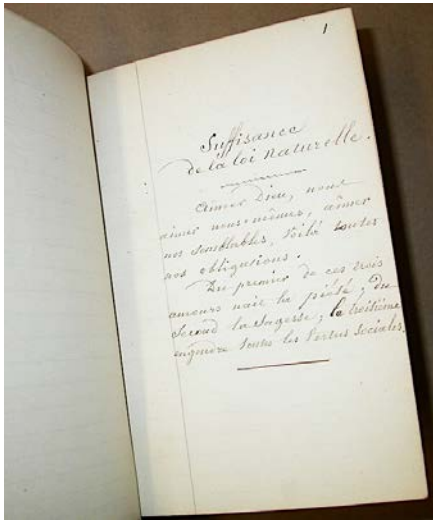 1
Suffisance
de la loi naturelle.
Aimer Dieu, nous
aimer nous-mêmes, aimer
nos semblables, voilà toutes
nos obligations.
Du premier de ces trois
amours naît la piété; du
second la sagesse; le troisième
engendre toutes les vertus sociales.